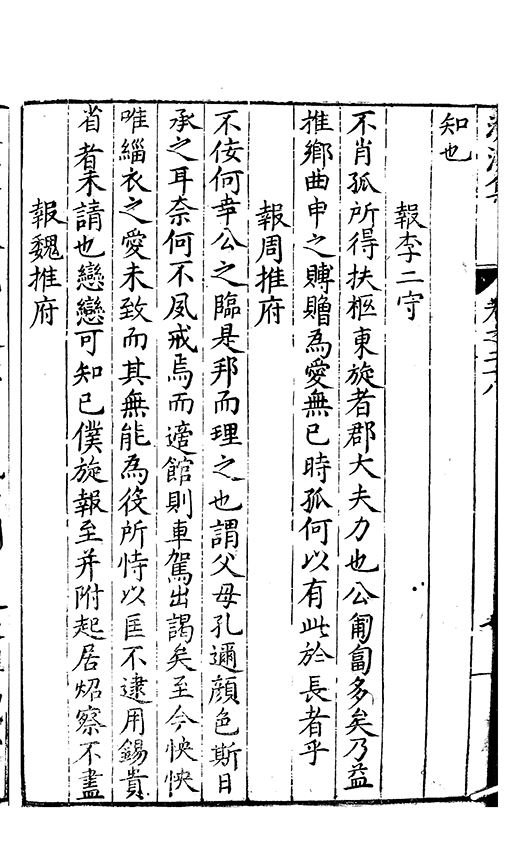 知也
報李二守
不肖孤所得扶柩東旋者郡大夫力也公匍匐多矣乃益
推鄉曲申之賻贈為愛無已時孤何以有此於長者乎
報周推府
不佞何幸公之臨是邦而理之也謂父母孔邇顔色斯日
承之耳奈何不夙戒焉而適館則車駕出謁矣至今怏怏
唯緇衣之愛未致而其無能為役所恃以匡不逮用錫貴
省者未請也戀戀可知已僕旋報至并附起居炤察不盡
報魏推府
卷之二十八